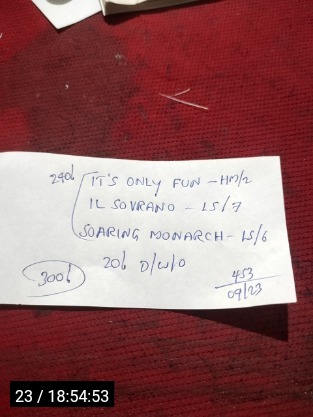 240b IT'S ONLY FUN - HM/2
IL SOVRANO - LS/7
SOARING MONARCH - LS/6
20b D/W/O
300b
453
09/23
23 / 18:54:53